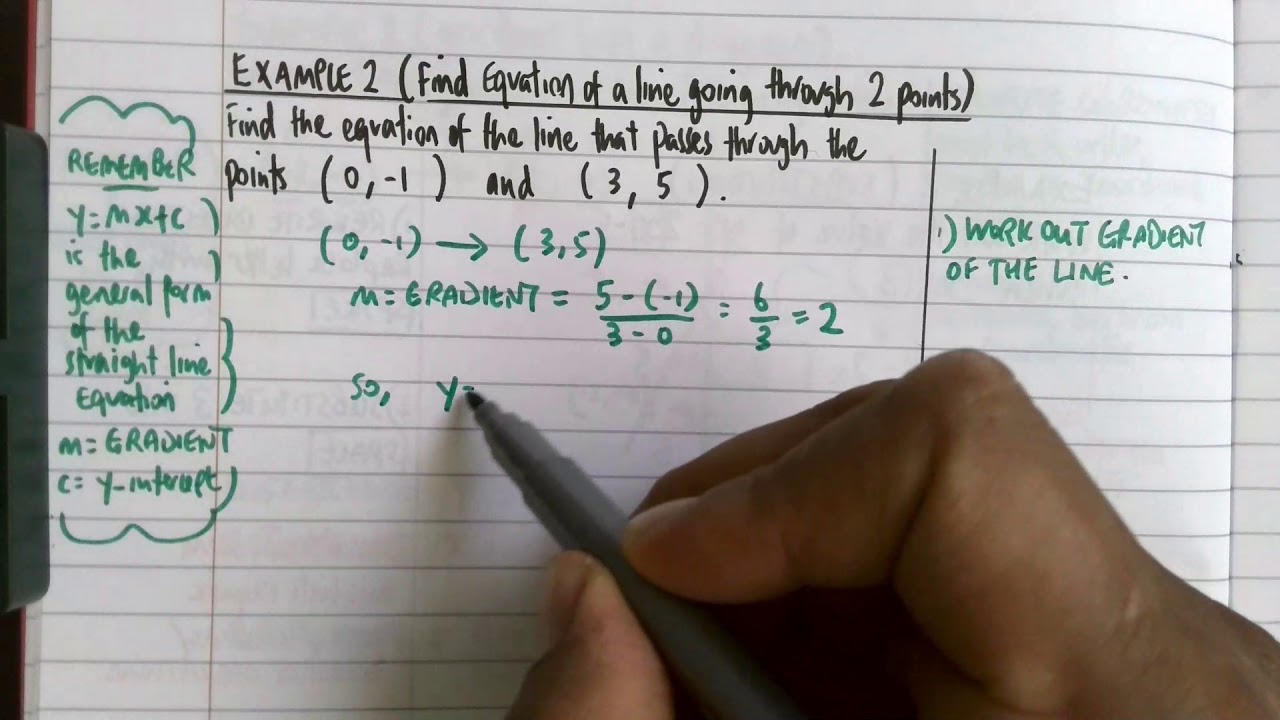 EXAMPLE 2 (Find Equation of a line going through 2 points)
Find the equation of the line that passes through the
points (0, -1) and (3, 5).
(0, -1) → (3, 5)
m = GRADIENT = 5 - (-1) / 3 - 0 = 6 / 3 = 2
so, y=
REMEMBER
y = mx + c
is the
general form
of the
straight line
Equation
m = GRADIENT
c = y-intercept
1) WORK OUT GRADIENT
OF THE LINE.